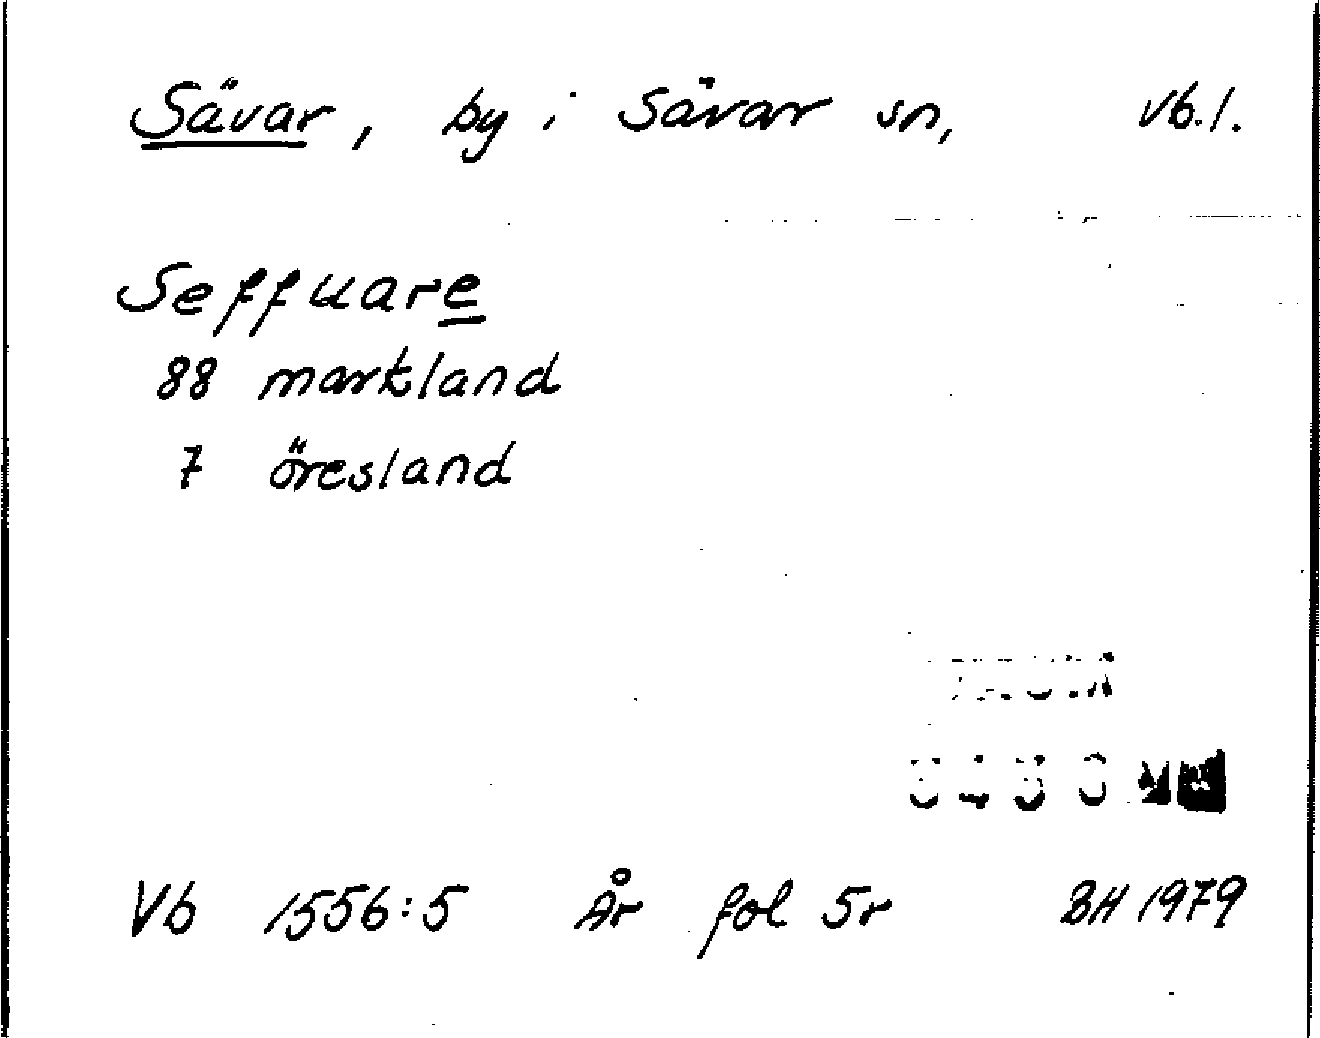 Sävar, by i Sävar sn, Vb.l.
Seffuare
88 markland
7 öresland
Vb 1556:5 År fol 5r BH 1979